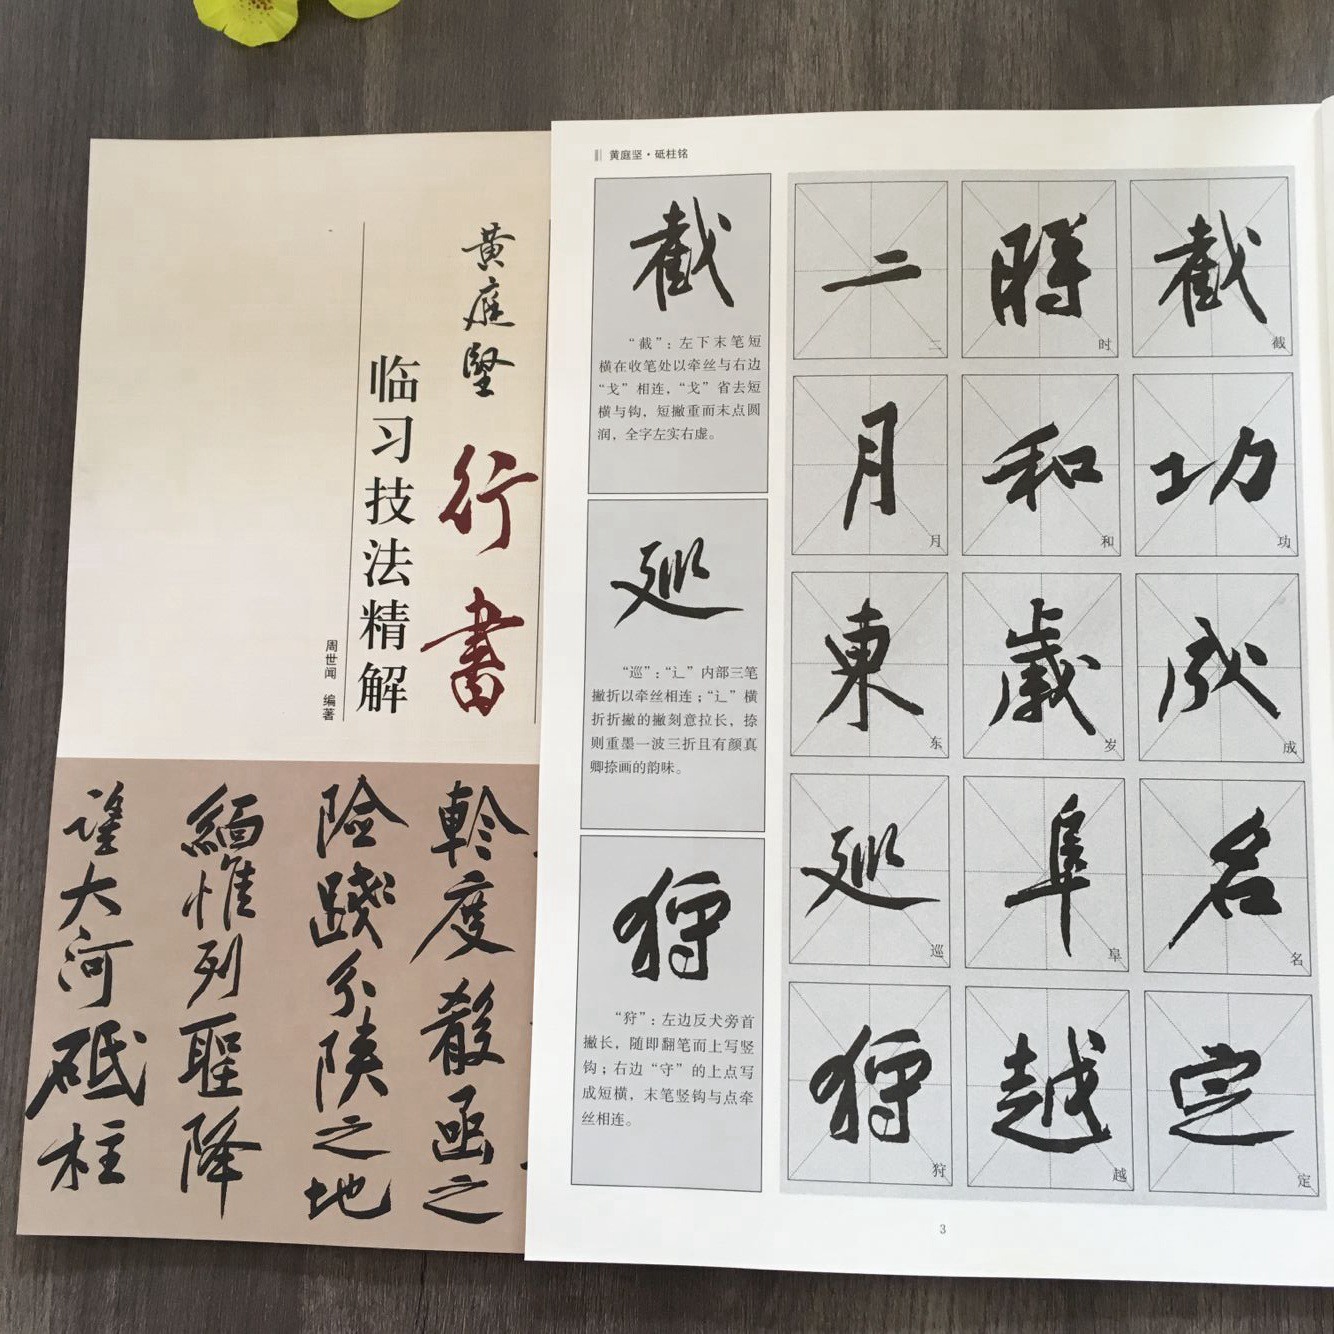 黄庭坚
行书
临习技法精解
周世闻 编著
軨度殽函之
险践分陕之地
缅惟列圣降
望大河砥柱
黄庭坚·砥柱铭
截
“截”：左下末笔短
横在收笔处以牵丝与右边
“戈”相连，“戈”省去短
横与钩，短撇重而末点圆
润，全字左实右虚。
巡
“巡”：“辶”内部三笔
撇折以牵丝相连；“辶”横
折折撇的撇刻意拉长，捺
则重墨一波三折且有颜真
卿捺画的韵味。
狩
“狩”：左边反犬旁首
撇长，随即翻笔而上写竖
钩；右边“守”的上点写
成短横，末笔竖钩与点牵
丝相连。
截 截
功 功
成 成
名 名
定 定
時 时
和 和
歲 岁
阜 阜
越 越
二 二
月 月
東 东
巡 巡
狩 狩
3